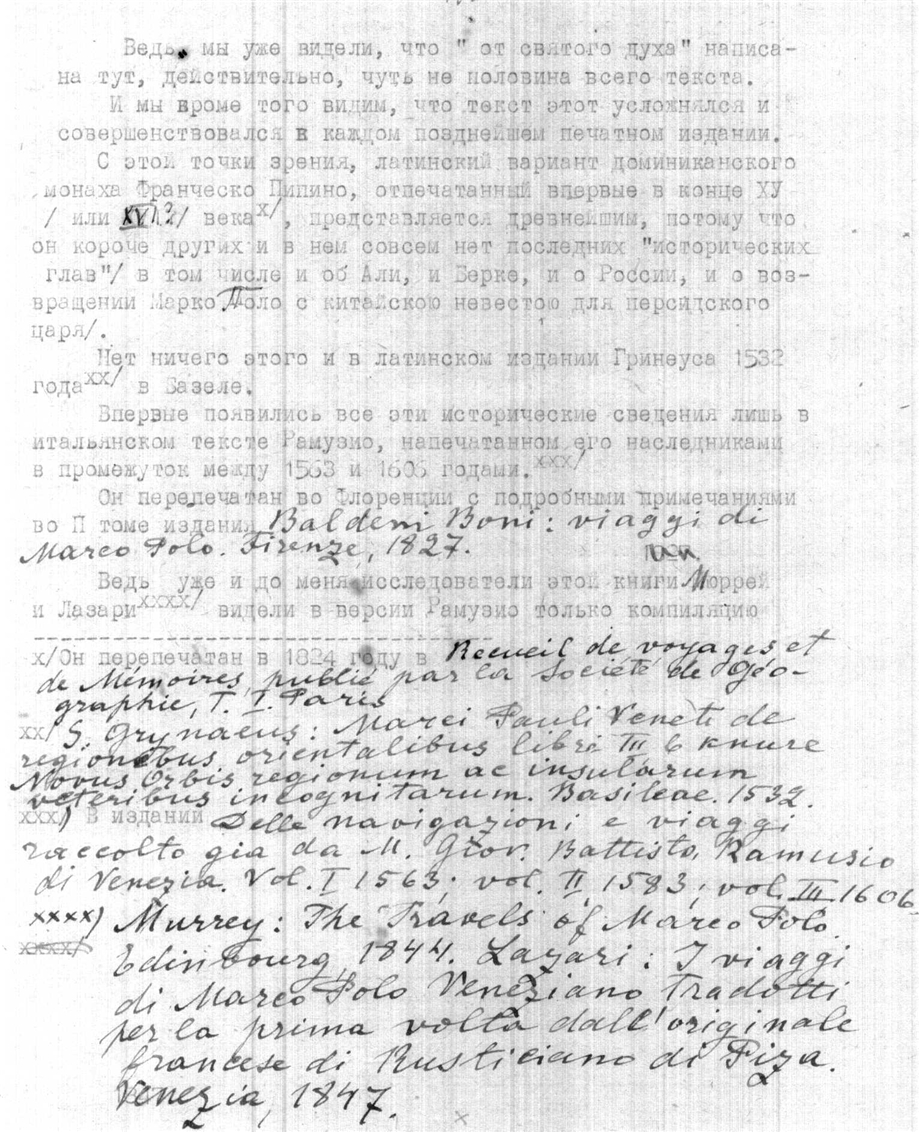 Ведь мы уже видели, что " от святого духа" написа-
на тут, действительно, чуть не половина всего текста.
И мы кроме того видим, что текст этот усложнялся и
совершенствовался в каждом позднейшем печатном издании.
С этой точки зрения, латинский вариант доминиканского
монаха Франческо Пипино, отпечатанный впервые в конце ХУ
/ или XVI ?/ века х/, представляется древнейшим, потому что
он короче других и в нем совсем нет последних "исторических
глав"/ в том числе и об Али, и Берке, и о России, и о воз-
вращении Марко Поло с китайскою невестою для персидского
царя/.
Нет ничего этого и в латинском издании Гринеуса 1532
года хх/ в Базеле.
Впервые появились все эти исторические сведения лишь в
итальянском тексте Рамузио, напечатанном его наследниками
в промежуток между 1563 и 1606 годами. ххх/
Он перепечатан во Флоренции с подробными примечаниями
во П томе издания Baldeni Boni: viaggi di
Marco Polo. Firenze, 1827.
Ведь уже и до меня исследователи этой книги Мюррей
и Лазари хххх/ видели в версии Рамузио только компиляцию
х/Он перепечатан в 1824 году в Recueil de voyages et
de Mémoires publié par la Societé de Géo-
graphie, T. I. Paris
хх/ S. Grynaeus: Marci Pauli Veneti de
regionebus orientalibus libri III в книге
Novus Orbis regionum ac insularum
veteribus incognitarum. Basileae. 1532.
ххх) В издании Delle navigazioni e viaggi
raccolto gia da M. Giov. Battista Ramusio
di Venezia. Vol. I 1563; vol. II, 1583; vol. III 1606
хххх) Murrey: The Travels of Marco Polo.
Edinbourg, 1844. Lazari: I viaggi
di Marco Polo Veneziano tradotti
per la prima volta dall'originale
francese di Rusticiano di Piza.
Venezia, 1847.